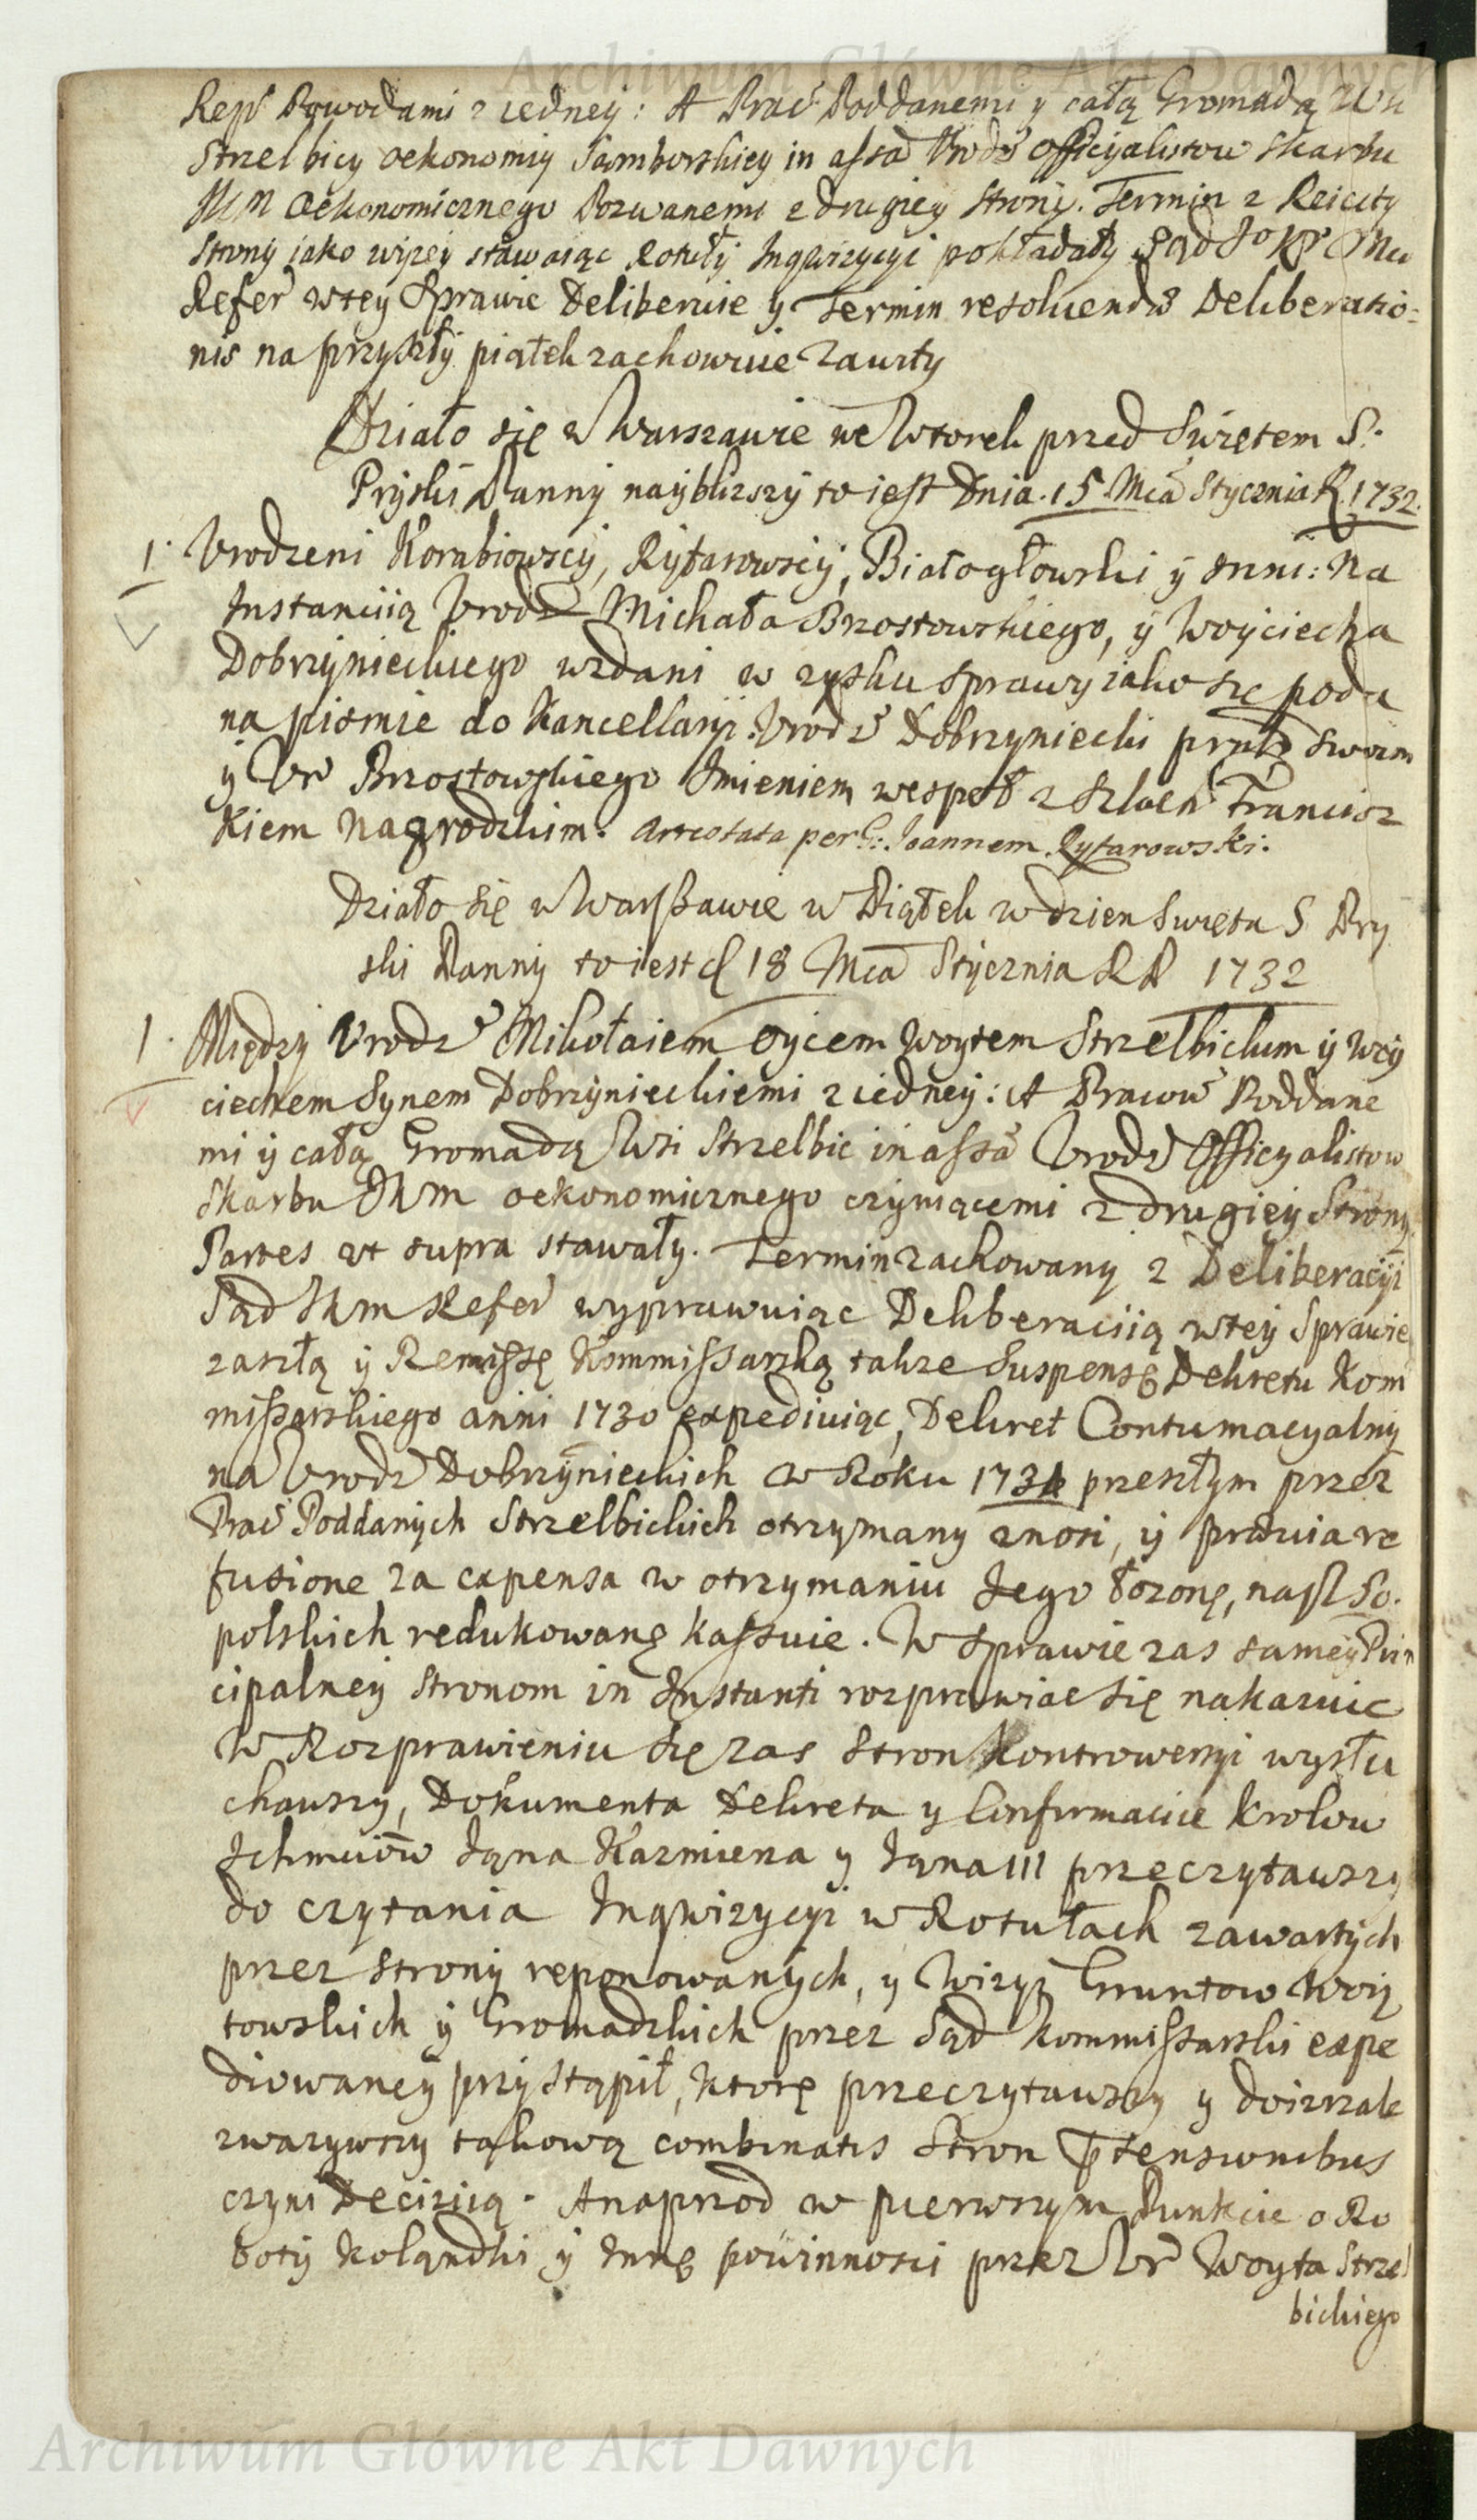 Archiwum Główne Akt Dawnych
Powodami z iedney: A Prać Poddanemi y całą Gromadą Wsi
Strzelbicy oekonomiy Samborskiey in assã Urodz Officyalistow Skarbu
JKM Oekonomicznego Pozwanemi z drugiey Strony. Termin z
Strony jako wyzey stawaiąc Rotuły Inqwizycyi pokładały Sąd
Refer wtey Sprawie Deliberuie y Termin resoluendæ Deliberatio=
nis na przyszły piątek zachowuie Zawity
Działo się w Warszawie we Wtorek przed Swiętem S.
Pryski Panny naybliszy to iest Dnia 15 Mca Stycznia R. 1732.
1. Urodzeni Korabiowscy, Rytarowscy, Białogłowski y Inni: Na
Instanciią Urodz Michała Brzostowskiego, y Woyciecha
Dobrzynieckiego wzdani w zysku Sprawy iako się poda
na pismie do Kancellaryi. Urodz Dobrzyniecki swoim
y Ur Brzostowskiego Imieniem wespoł z Szlach Francisz
kiem Nagrodzkim. Arrestata per G: Joannem Rytarowski.
Działo się w Warszawie w Piątek w dzien Swięta S Pry
ski Panny to iest d 18 Mca Stycznia RP 1732
1. Między Urodz Mikołaiem Oycem Woytem Strzelbickim y Woy
ciechem Synem Dobrzynieckiemi z iedney: A Pracow Poddane
mi y całą Gromadą Wsi Strzelbic in assã Urodz Officyalistow
Skarbu JKM oekonomicznego czyniącemi z drugiey Strony
Partes ut supra stawały. Termin zachowany z Deliberacyi
Sąd JKM Refer wyprawuiąc Deliberaciią wtey Sprawie
zaszłą y Remissę Kommissarską takze Suspensę Dekretu Kom
missarskiego anni 1730 expediuiąc, Dekret Contumacyalny
na Urodz Dobrzynieckich w Roku 1731 przeszłym przez
Prać Poddanych Strzelbickich otrzymany znosi, y
fusione za expensa w otrzymaniu Jego łozonę,
polskich redukowanę kassuie. W Sprawie zas samey Prin
cipalney Stronom in Instanti rozprawiac się nakazuie
W Rozprawieniu się zas Stron Kontrowersyi wysłu
chawszy, Dokumenta Dekreta y Confirmacije Krolow
Ichmciow Jana Kazmierza y Jana III przeczytawszy
do czytania Inqwizycyi w Rotułach zawartych
przez Strony reponowanych, y Wizyi Gruntow Woy
towskich y Gromadzkich przez Sąd Kommissarski expe
diowaney przystąpił, ktorę przeczytawszy y doirzale
zwazywszy takową combinatis Stron p̃tensionibus
czyni Deciziią. A naprzod w pierwszym Punkcie o Ro
boty Kolędki y Innę powinnosci przez Ur Woyta Strzel
bickiego
Archiwum Główne Akt Dawnych